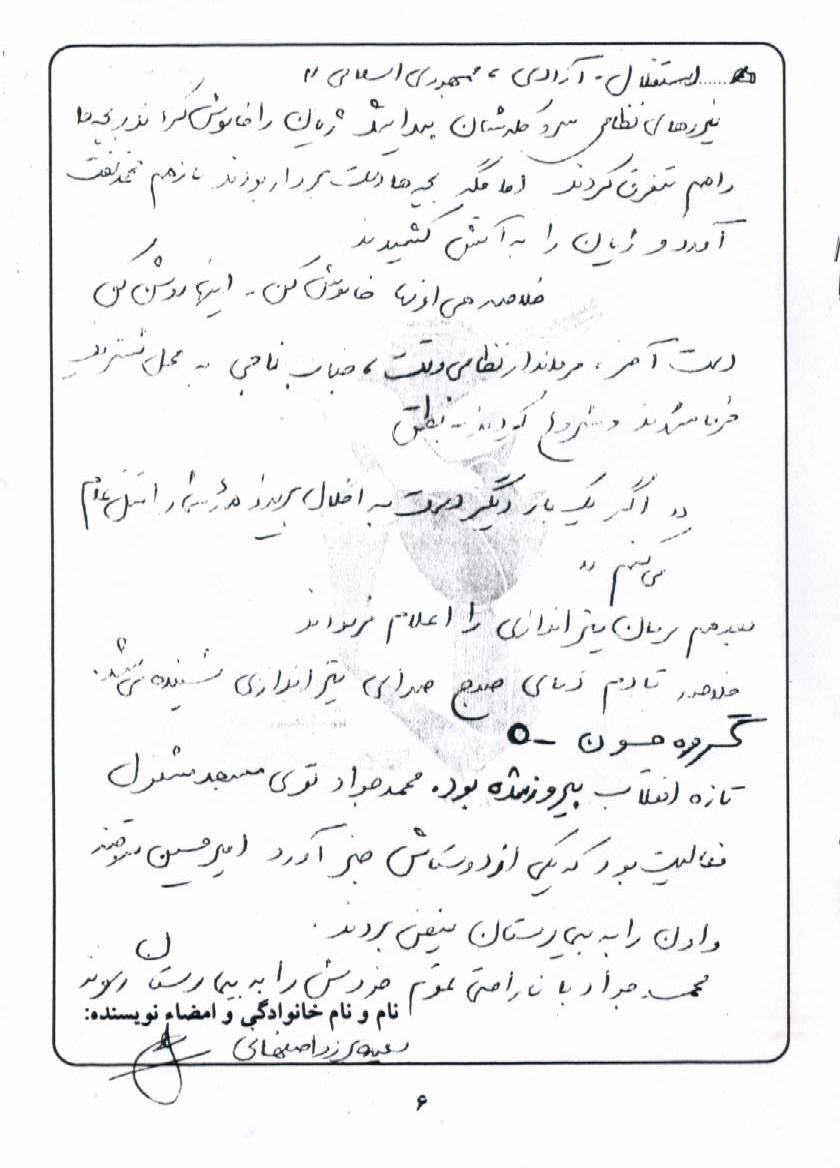 استقلال - آزادی ، جمهوری اسلامی "
نیروهای نظامی سر و کله شان پیدا شد ژیان را خاموش کردند و بچه ها
را هم متفرق کردند اما مگر بچه ها دست بردار بودند باز هم محمد نفت
آورد و ژیان را به آتش کشیدند
خلاصه هی اونها خاموش کن - اینها روشن کن
دست آخر ، فرماندار نظامی وقت ، جناب ناجی به محل تشریف
فرما شدند و شروع کردند به نطق
" اگر یک بار دیگر دست به اخلال بزنید همه شما را قتل عام
می کنم "
بعد هم فرمان تیراندازی را اعلام فرمودند
خلاصه تا دم دمای صبح صدای تیراندازی شنیده می شد.
گروه خون O-
تازه انقلاب پیروز شده بود. محمد جواد توی مسجد مشغول
فعالیت بود که یکی از دوستاش خبر آورد امیرحسین
را به بیمارستان بردند.
محمد جواد با ناراحتی تموم خودش را به بیمارستان رسوند
نام و نام خانوادگی و امضاء نویسنده:
۶